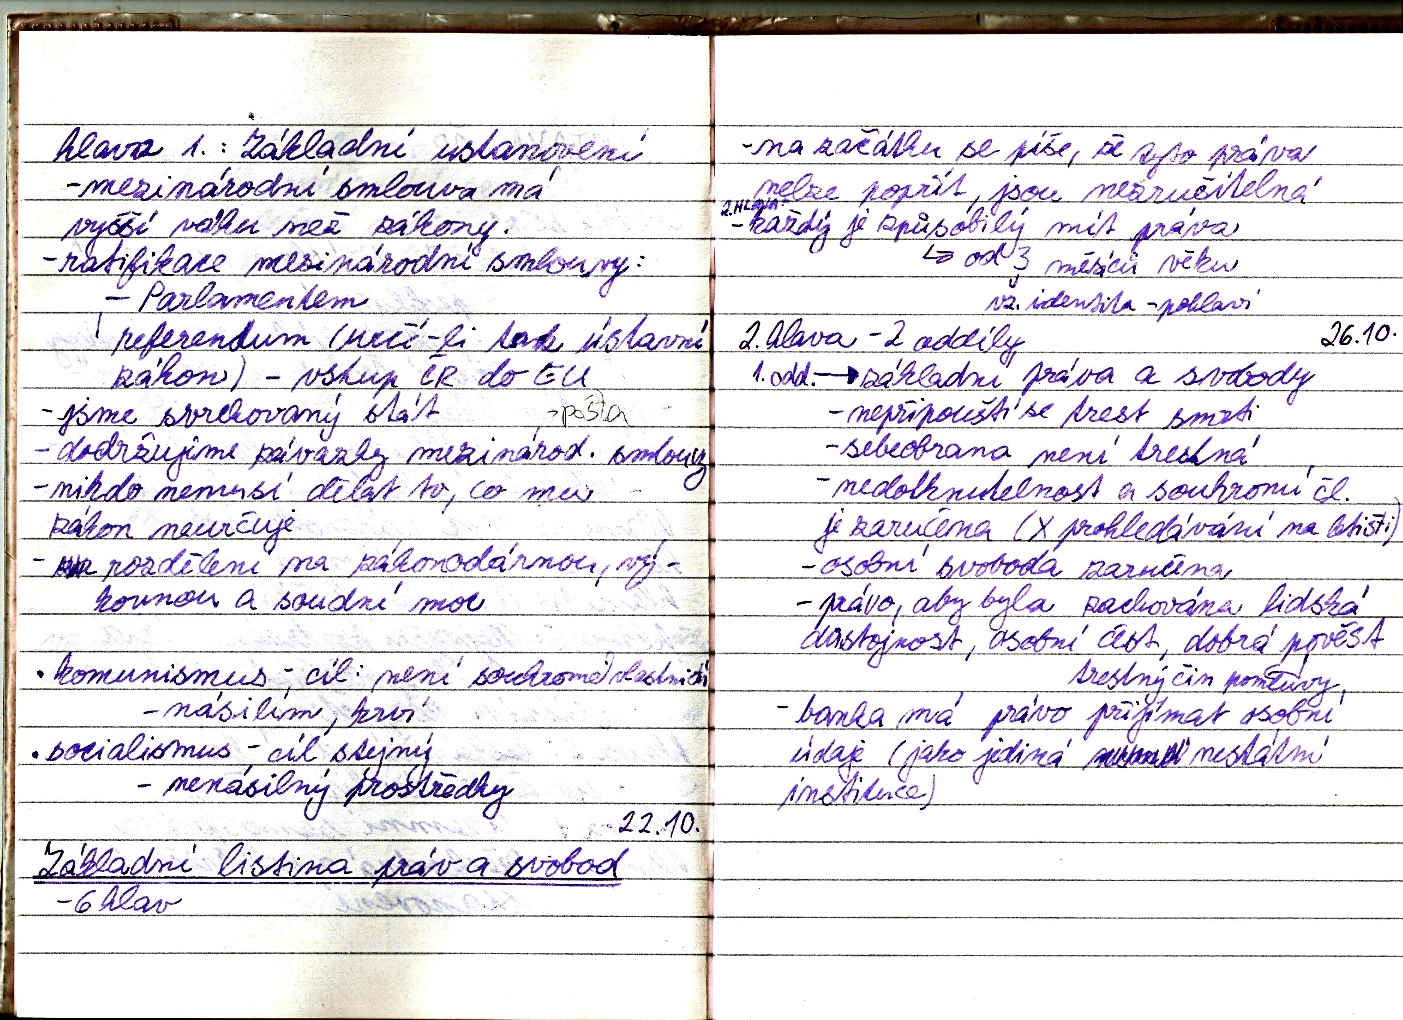 hlava 1.: Základní ustanovení
- mezinárodní smlouva má
vyšší váhu než zákony.
- ratifikace mezinárodní smlouvy:
- Parlamentem
referendum (určí-li tak ústavní
zákon) - vstup ČR do EU
- jsme svrchovaný stát - pošta
- dodržujeme závazky mezinárod. smlouvy
- nikdo nemusí dělat to, co mu
zákon neurčuje
- rozdělení na zákonodárnou, vý-
konnou a soudní moc
• komunismus - cíl: není soukromé vlastnictví
- násilím, krví
• socialismus - cíl stejný
- nenásilný prostředky
22.10.
Základní listina práv a svobod
- 6 hlav
- na začátku se píše, že tyto práva
nelze popřít, jsou nezručitelná
2. HLAVA
- každý je způsobilý mít práva
↳ od 3 měsíců věku
viz. identita - pohlaví
2. hlava - 2 oddíly 26.10.
1. odd. → základní práva a svobody
- nepřipouští se trest smrti
- sebeobrana není trestná
- nedotknutelnost a soukromí čl.
je zaručena (X prohledávání na letišti)
- osobní svoboda zaručena
- právo, aby byla zachována lidská
důstojnost, osobní čest, dobrá pověst
trestný čin pomluvy
- banka má právo přijímat osobní
údaje (jako jediná nestátní
instituce)